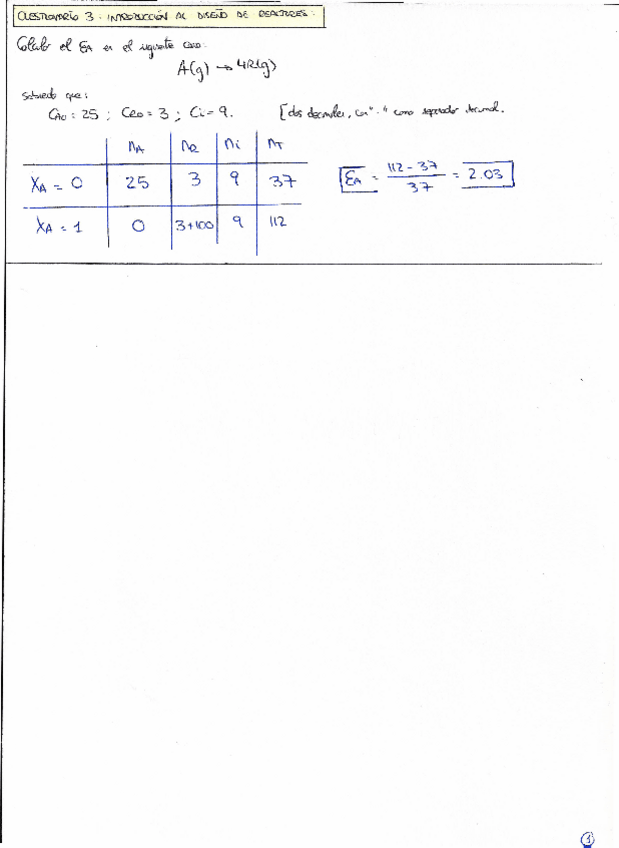 CUESTIONARIO 3 : INTRODUCCIÓN AL DISEÑO DE REACTORES.
Calcular el εA en el siguiente caso:
A(g) → 4R(g)
sabiendo que:
CA0 = 25 ; CR0 = 3 ; Ci = 9. [dos decimales, con "." como separador decimal.
nA nR ni nT
XA = 0 25 3 9 37
XA = 1 0 3+100 9 112
εA = (112 - 37) / 37 = 2.03
1